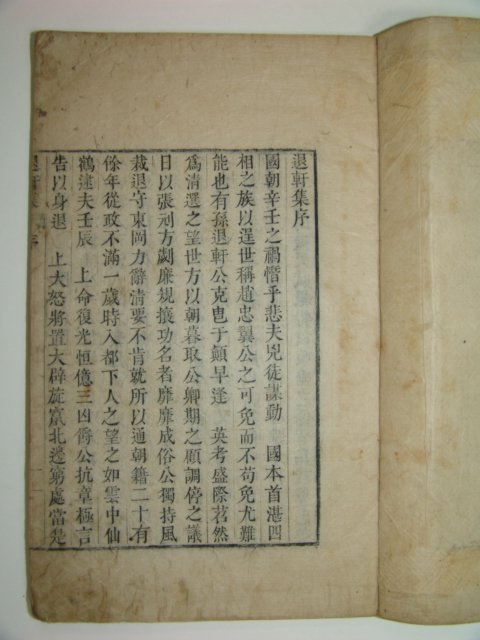 退軒集序
國朝辛壬之禍憯乎悲夫兇徒謀動　國本首湛四
相之族以逞世稱趙忠翼公之可免而不苟免尤難
能也有孫退軒公克皀于顚早逢　英考盛際茗然
爲淸選之望世方以朝暮取公卿期之顧調停之議
日以張刓方劌廉規攘功名者靡靡成俗公獨持風
裁退守東岡力辭淸要不肯就所以通朝籍二十有
餘年從政不滿一歲時入都下人之望之如雲中仙
鶴逮夫壬辰　上命復光恒億三凶爵公抗章極言
告以身退　上大怒將置大辟旋竄北邊窮處當是
退軒集　序